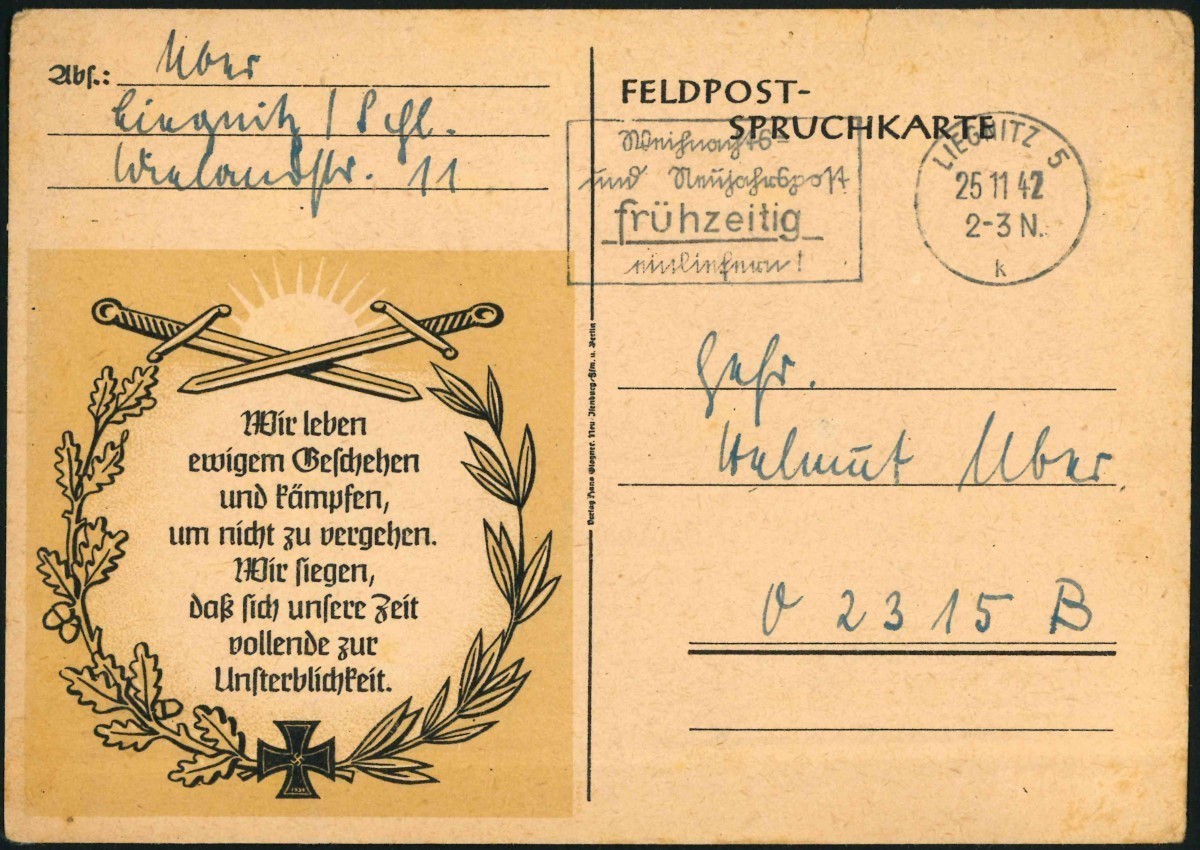 Abs.: Uber
Liegnitz / Schl.
Wielandstr. 11
FELDPOST-
SPRUCHKARTE
Weihnachts-
und Neujahrspost
frühzeitig
einliefern!
LIEGNITZ 5
25 11 42
2-3 N.
k
Wir leben
ewigem Geschehen
und kämpfen,
um nicht zu vergehen.
Wir siegen,
daß sich unsere Zeit
vollende zur
Unsterblichkeit.
1939
Verlag Hans Glogner, Neu-Isenburg/Ffm. u. Berlin
Gefr.
Helmut Uber.
O 2315 B